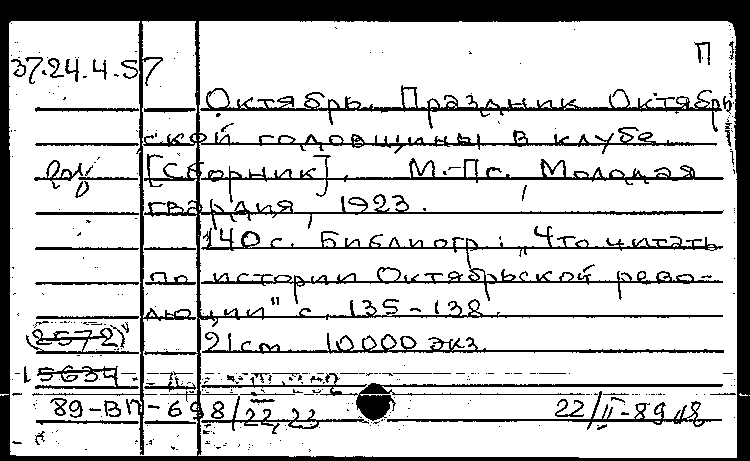 П
37.24.4.57
Октябрь. Праздник Октябрь
ской годовщины в клубе.
[Сборник]. М.-Пг. Молодая
гвардия, 1923.
140 с. Библиогр.: "Что читать
по истории Октябрьской рево-
люции" с. 135-138.
(2572) 21 cm 10000 экз.
15634
89-ВП-698/22,23 22/II-89